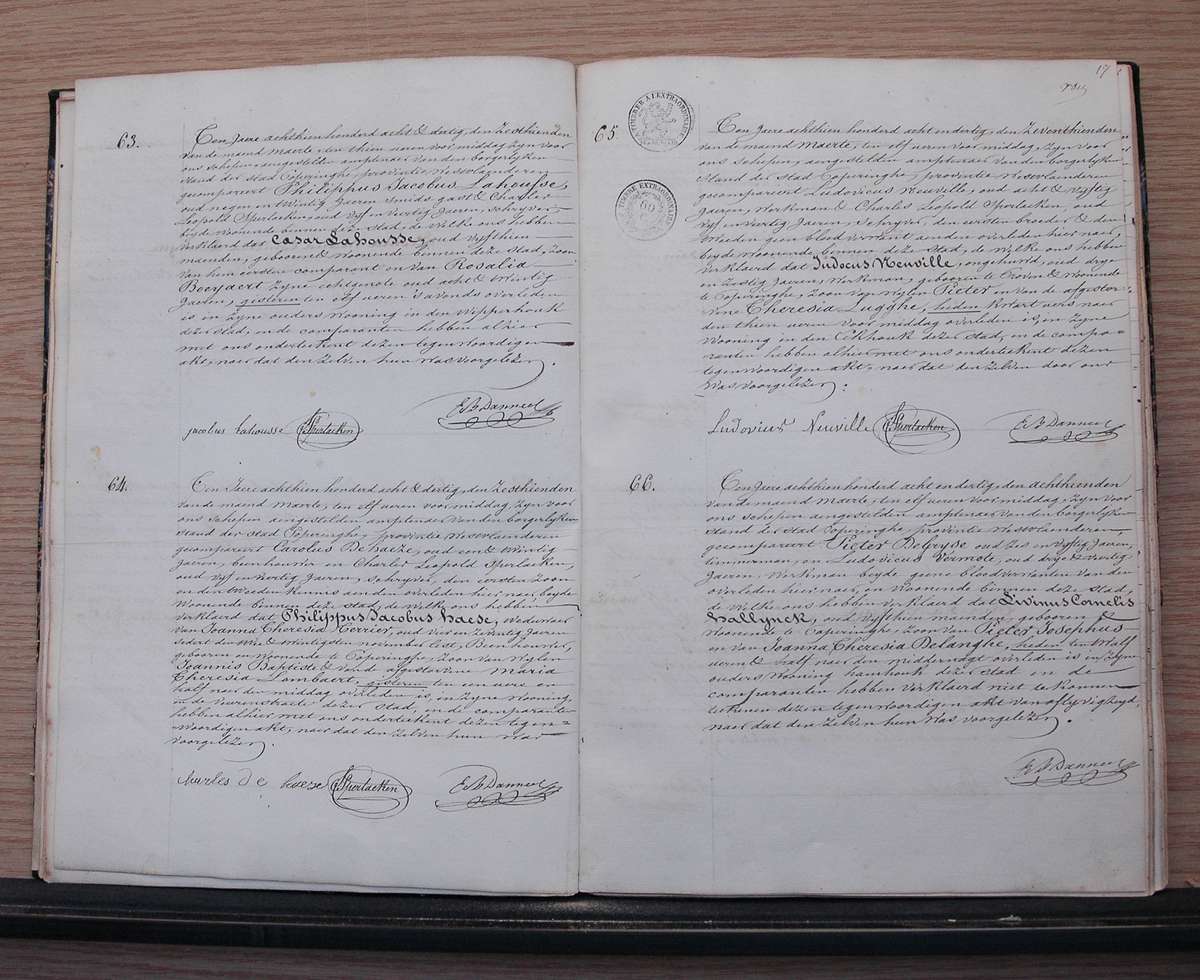 63.
Ten Jaere achthien honderd acht & dertig, den Zesthienden
van de maend Maerte, ten thien ueren voor middag, zyn voor
ons schepen aengestelden amptenaer van den borgerlyken
stand der stad Poperinghe, provintie Westvlaenderen
gecompareert Philippus Jacobus Lahousse,
oud negen en twintig Jaeren Smids gast & Charles
Leopold Sperlaeken, oud vyf en veertig Jaeren, schryver
beyde woonende binnen deze stad, de welke ons hebben
verklaerd dat Cæsar Lahousse, oud vyfthien
maenden, geboren & woonende binnen deze stad, Zoon
van hem eersten comparant en van Rosalia
Beeyaert zyne echtgenote oud acht & twintig
Jaeren, gisteren ten elf ueren s'avonds overleden
is in zyne ouders wooning in den Wipperhoek
dezer stad, en de comparanten hebben alhier
met ons onderteekent dezen tegenwoordigen
akt, naer dat den zelven hun was voorgelezen.
jacobus Lahousse Sperlaeken
64.
Ten Jaere achthien honderd acht & dertig, den Zesthienden
van de maend Maerte, ten elf ueren voor middag, zyn voor
ons schepen aengestelden amptenaer van den borgerlyken
stand der stad Poperinghe, provintie Westvlaenderen
gecompareert Carolus Dehaeze, oud een & twintig
Jaeren, beenhouwer en Charles Leopold Sperlaeken,
oud vyf en veertig Jaeren, schryver, den eersten zoon
en den tweeden kennis aen den overleden hier naer, beyde
woonende binnen deze stad, de welke ons hebben
verklaerd dat Philippus Jacobus haese, weduwaer
van Joanna Theresia Terrier, oud vier en zeventig Jaeren
november lest, Beenhouwer,
geboren en woonende te Poperinghe, Zoon van wylen
Joannis Baptiste & van de afgestorvene Maria
Theresia Lombaert, gisteren ten een uere en
half naer den middag overleden is, in zyne wooning
in de veurenstraete dezer stad, en de comparanten
hebben alhier met ons onderteekent dezen tegen=
woordigen akt, naer dat den zelven hun was
voorgelezen.
charles de haeze Sperlaeken
17
65
Ten Jaere achthien honderd acht en dertig, den Zeventhienden
van de maend Maerte, ten elf ueren voor middag, zyn voor
ons schepen, aengestelden amptenaer van den borgerlyken
stand der stad Poperinghe, provintie Westvlaenderen
gecompareert Ludovicus Neuville, oud acht & vyftig
Jaeren, Werkman & Charles Leopold Sperlaeken, oud
vyf en veertig Jaeren, Schryver, den eersten broeder & den
tweeden geen bloedverwant aen den overleden hier naer,
beyde woonende binnen deze stad, de welke ons hebben
verklaerd dat Judocus Neuville, ongehuwd, oud drye
en zestig Jaeren, Werkman, geboren te & woonende
te Poperinghe, Zoon van wylen Pieter en van de afgestor-
vene Theresia Lugghe, heden kwart uers naer
den thien ueren voor middag overleden is, in zyne
wooning in den Eekhoek dezer stad, en de compa=
ranten hebben alhier met ons onderteekent dezen
tegenwoordigen akt, naer dat den zelven door ons
was voorgelezen.
Ludovicus Neuville Sperlaeken
66.
Ten Jaere achthien honderd acht en dertig, den achthienden
van de maend Maerte, ten elf ueren voor middag, zyn voor
ons schepen aengestelden amptenaer van den borgerlyken
stand der stad Poperinghe, provintie Westvlaenderen
gecompareert Pieter Debryde oud zes en vyftig Jaeren,
timmerman, en Ludovicus Vermote, oud drye & veertig
Jaeren, Werkman beyde geene bloedverwanten van den
overleden hier naer, en woonende binnen deze stad,
de welke ons hebben verklaerd dat Livinus Cornelis
hallynck, oud vyfthien maenden, geboren &
woonende te Poperinghe, Zoon van Pieter Josephus
en van Joanna Theresia Delanghe, heden ten twalf
ueren & half naer den middernagt overleden is in zyne
ouders wooning hamhoek dezer stad en de
comparanten hebben verklaerd niet te konnen
teekenen dezen tegenwoordigen akt van aflyvigheyd,
naer dat den zelven hun was voorgelezen.